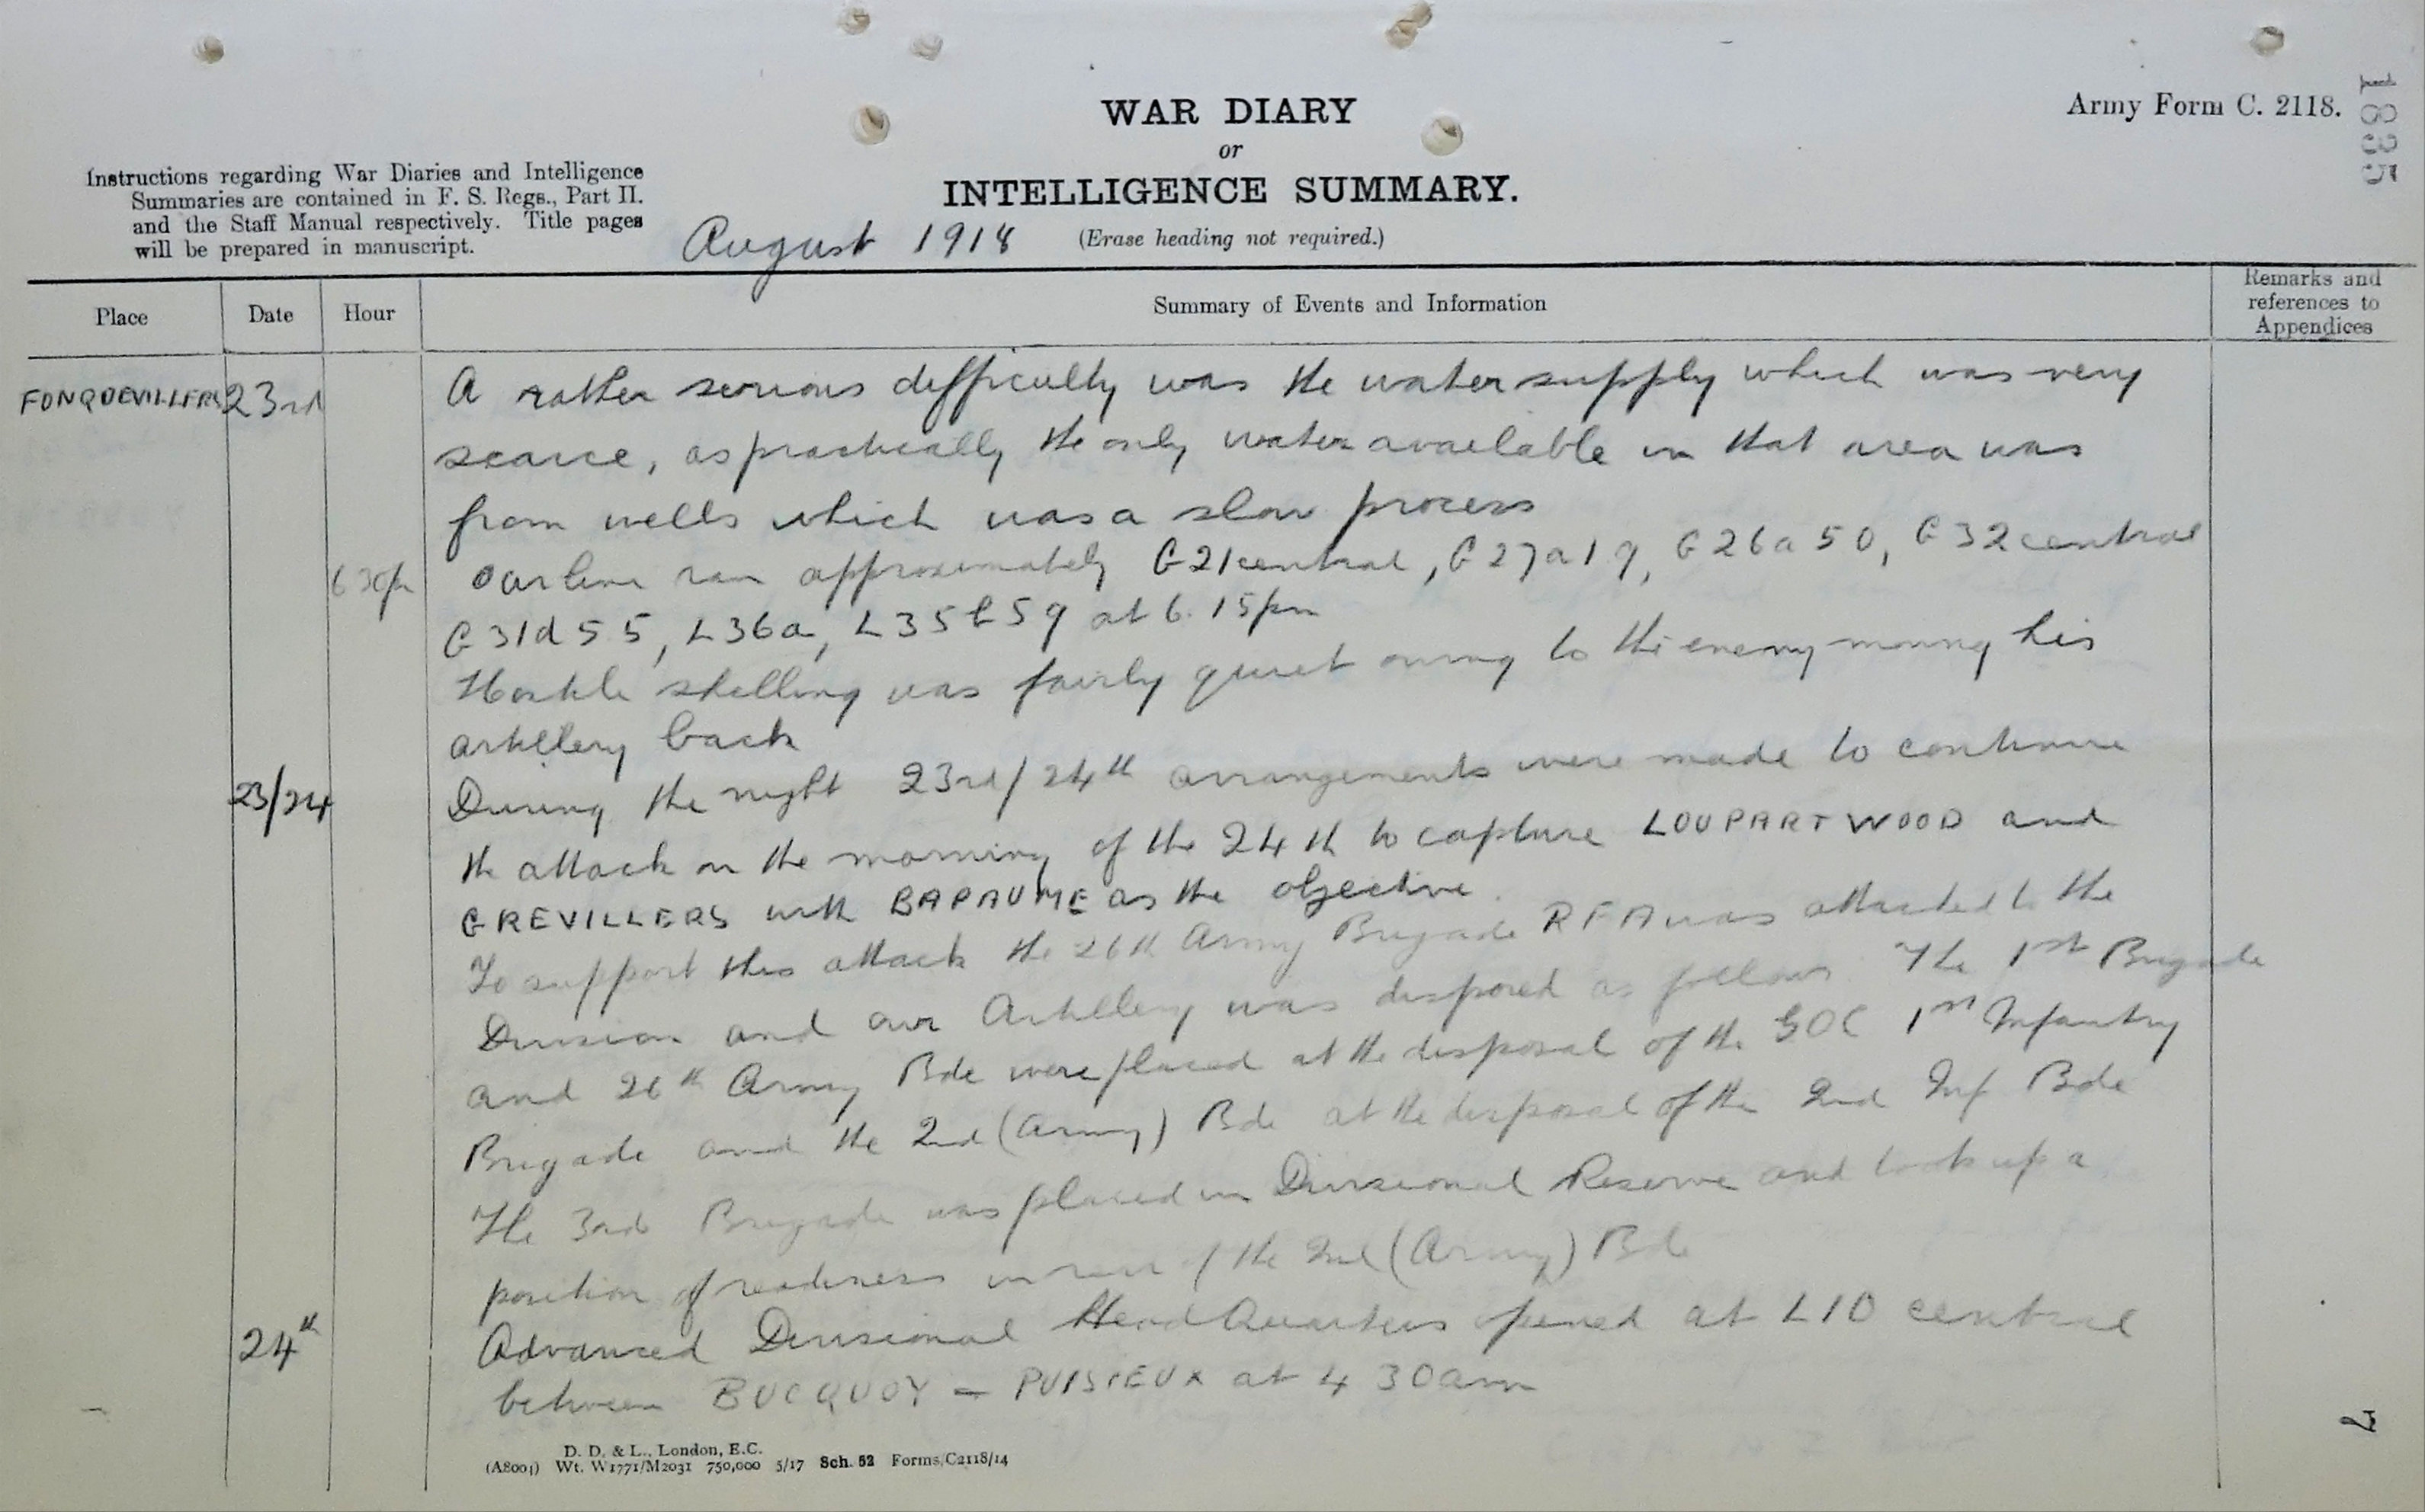 1835
Army Form C. 2118.
WAR DIARY
or
INTELLIGENCE SUMMARY.
(Erase heading not required.)
Instructions regarding War Diaries and Intelligence
Summaries are contained in F. S. Regs., Part II.
and the Staff Manual respectively. Title pages
will be prepared in manuscript.
August 1918
Place
Date
Hour
Summary of Events and Information
Remarks and
references to
Appendices
FONQUEVILLERS 23rd A rather serious difficulty was the water supply which was very
scarce, as practically the only water available in that area was
from wells which was a slow process
6 30pm Our line ran approximately G21central, G27a19, G26a50, G32central
G31d55, L36a, L35b59 at 6.15pm
Hostile shelling was fairly quiet owing to the enemy moving his
artillery back
23/24 During the night 23rd/24th arrangements were made to continue
the attack on the morning of the 24th to capture LOUPART WOOD and
GREVILLERS with BAPAUME as the objective.
To support this attack the 26th Army Brigade RFA was attached to the
Division and our Artillery was disposed as follows. The 1st Brigade
and 26th Army Bde were placed at the disposal of the GOC 1st Infantry
Brigade and the 2nd (Army) Bde at the disposal of the 2nd Inf Bde
The 3rd Brigade was placed in Divisional Reserve and took up a
position of readiness in rear of the 2nd (Army) Bde
24th Advanced Divisional Head Quarters opened at L10 central
between BUCQUOY - PUISIEUX at 4 30am
7
D. D. & L., London, E.C.
(A8001) Wt. W1771/M2031 750,000 5/17 Sch. 52 Forms/C2118/14